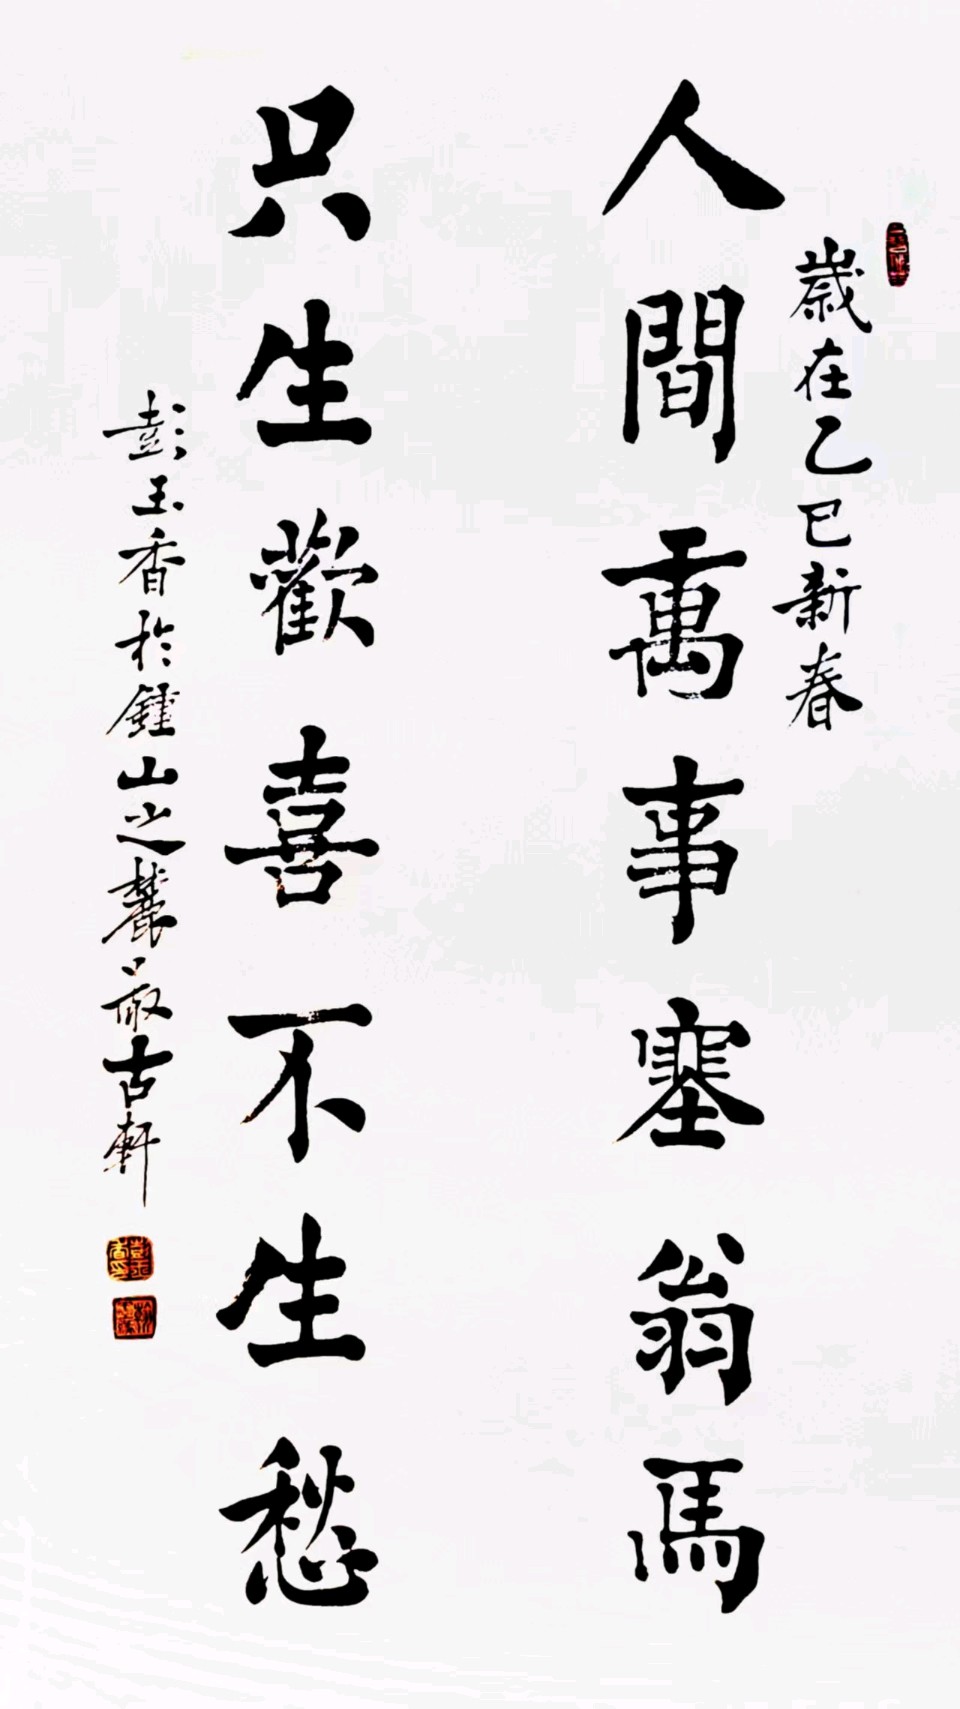 歲在乙巳新春
人間萬事塞翁馬
只生歡喜不生愁
彭玉香於鍾山之麓嚴古軒